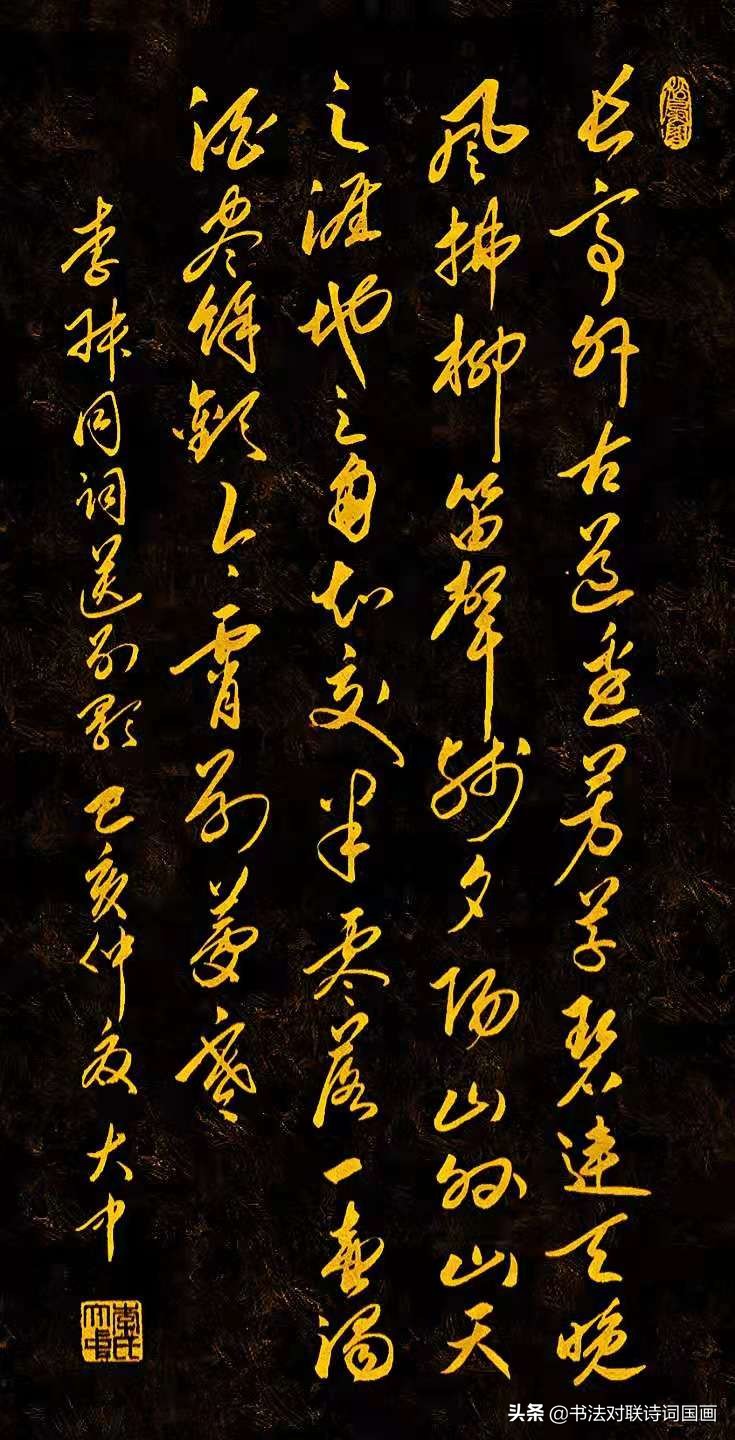 长亭外古道边芳草碧連天晚
风拂柳笛聲残夕阳山外山天
之涯地之角知交半零落一壶濁
酒尽餘歡今宵别夢寒
李叔同词送别歌 己亥仲夏 大中
李氏大中
头条 @书法对联诗词国画